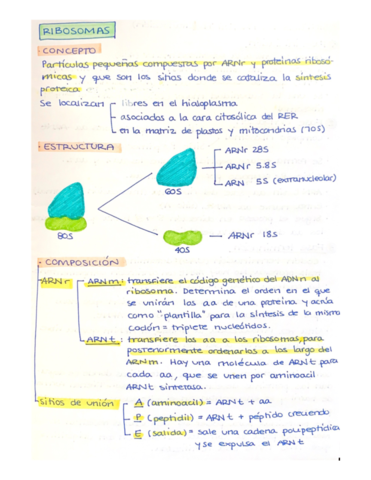 RIBOSOMAS
· CONCEPTO
Partículas pequeñas compuestas por ARNr y proteínas ribosó-
micas y que son los sitios donde se cataliza la síntesis
proteica.
Se localizan
libres en el hialoplasma
asociadas a la cara citosólica del RER
en la matriz de plastos y mitocondrias (70S)
· ESTRUCTURA
80S
60S
ARNr 28S
ARNr 5.8S
ARN 5S (extranucleolar)
40S
ARNr 18S
· COMPOSICIÓN
ARNr
ARNm: transfiere el código genético del ADNn al
ribosoma. Determina el orden en el que
se unirán los aa de una proteína y actúa
como "plantilla" para la síntesis de la misma
codón = triplete nucleótidos.
ARNt: transfiere los aa a los ribosomas, para
posteriormente ordenarlos a lo largo del
ARNm. Hay una molécula de ARNt para
cada aa, que se unen por aminoacil
ARNt sintetasa.
Sitios de unión
A (aminoacil) = ARNt + aa
P (peptidil) = ARNt + péptido creciendo
E (salida) = sale una cadena polipeptídica
y se expulsa el ARNt